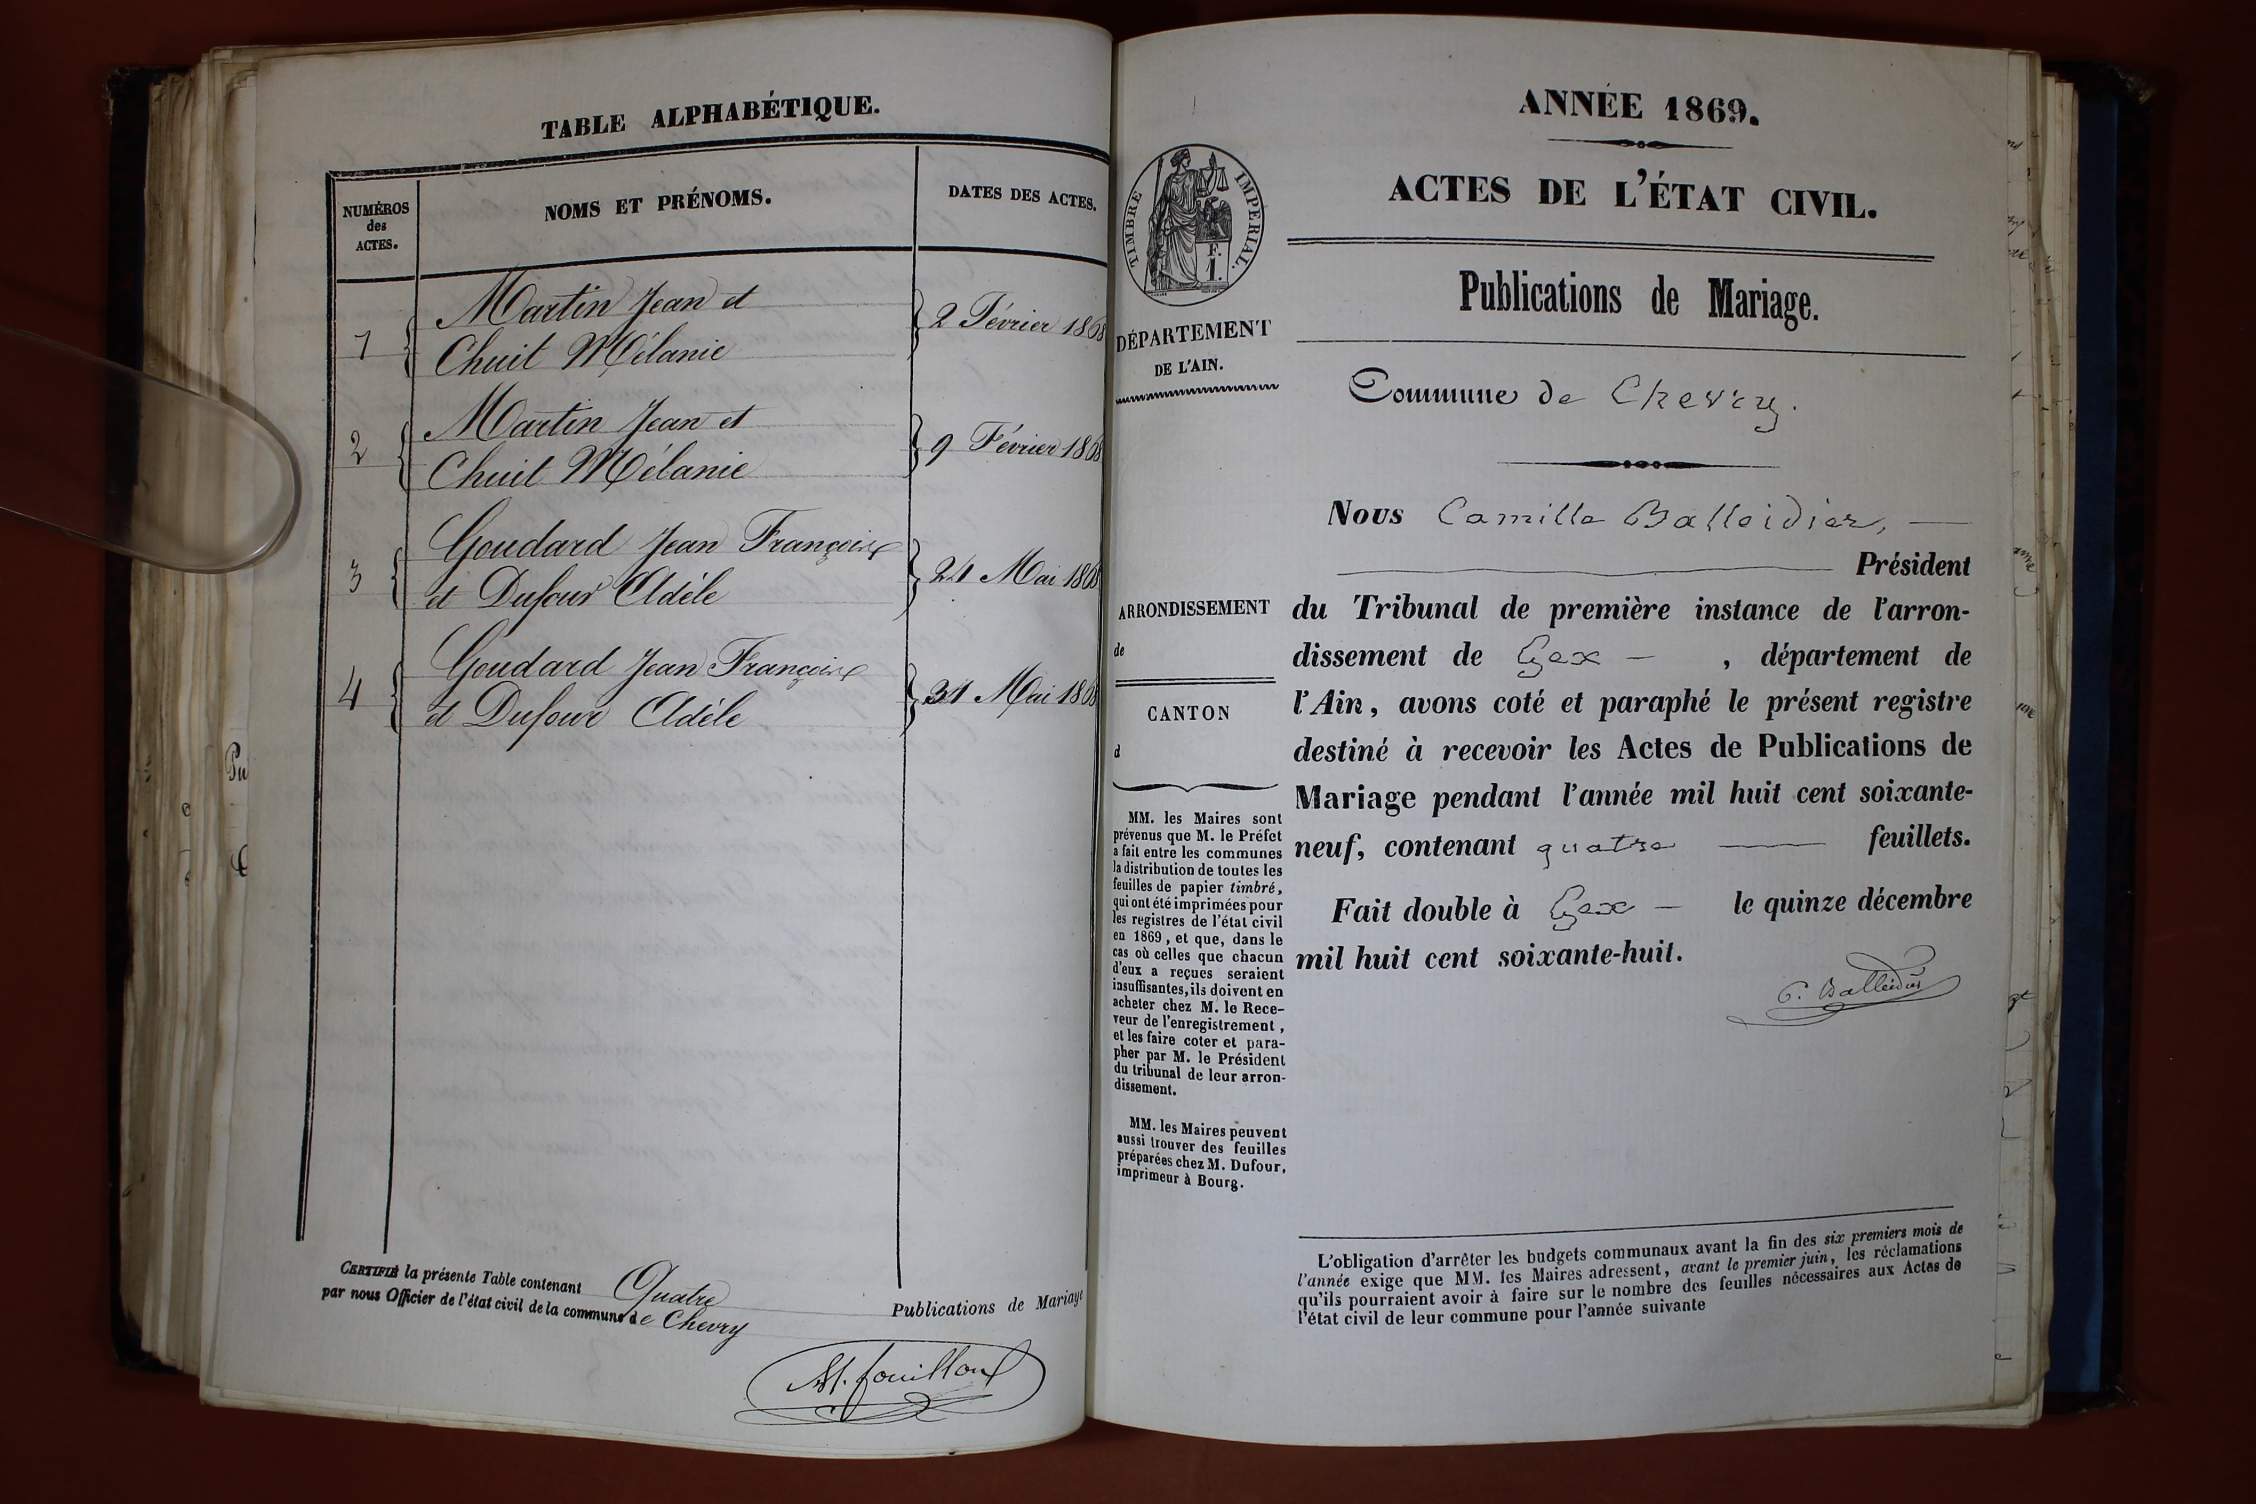 TABLE ALPHABÉTIQUE.
NUMÉROS
des
ACTES.
NOMS ET PRÉNOMS.
DATES DES ACTES.
1
Martin Jean et
Chuit Mélanie
2 Février 1868
2
Martin Jean et
Chuit Mélanie
9 Février 1868
3
Goudard Jean François
et Dufour Adèle
24 Mai 1868
4
Goudard Jean François
et Dufour Adèle
31 Mai 1868
CERTIFIÉ la présente Table contenant Quatre Publications de Mariage
par nous Officier de l'état civil de la commune de Chevry
ANNÉE 1869.
ACTES DE L'ÉTAT CIVIL.
Publications de Mariage.
TIMBRE IMPÉRIAL.
F.
1.
DÉPARTEMENT
DE L'AIN.
ARRONDISSEMENT
de
CANTON
d
MM. les Maires sont
prévenus que M. le Préfet
a fait entre les communes
la distribution de toutes les
feuilles de papier timbré,
qui ont été imprimées pour
les registres de l'état civil
en 1869, et que, dans le
cas où celles que chacun
d'eux a reçues seraient
insuffisantes, ils doivent en
acheter chez M. le Rece-
veur de l'enregistrement,
et les faire coter et para-
pher par M. le Président
du tribunal de leur arron-
dissement.
MM. les Maires peuvent
aussi trouver des feuilles
préparées chez M. Dufour,
imprimeur à Bourg.
Commune de Chevry.
Nous Camille Balleidier,
Président
du Tribunal de première instance de l'arron-
dissement de Gex , département de
l'Ain, avons coté et paraphé le présent registre
destiné à recevoir les Actes de Publications de
Mariage pendant l'année mil huit cent soixante-
neuf, contenant quatre feuillets.
Fait double à Gex le quinze décembre
mil huit cent soixante-huit.
C. Balleidier
L'obligation d'arrêter les budgets communaux avant la fin des six premiers mois de
l'année exige que MM. les Maires adressent, avant le premier juin, les réclamations
qu'ils pourraient avoir à faire sur le nombre des feuilles nécessaires aux Actes de
l'état civil de leur commune pour l'année suivante